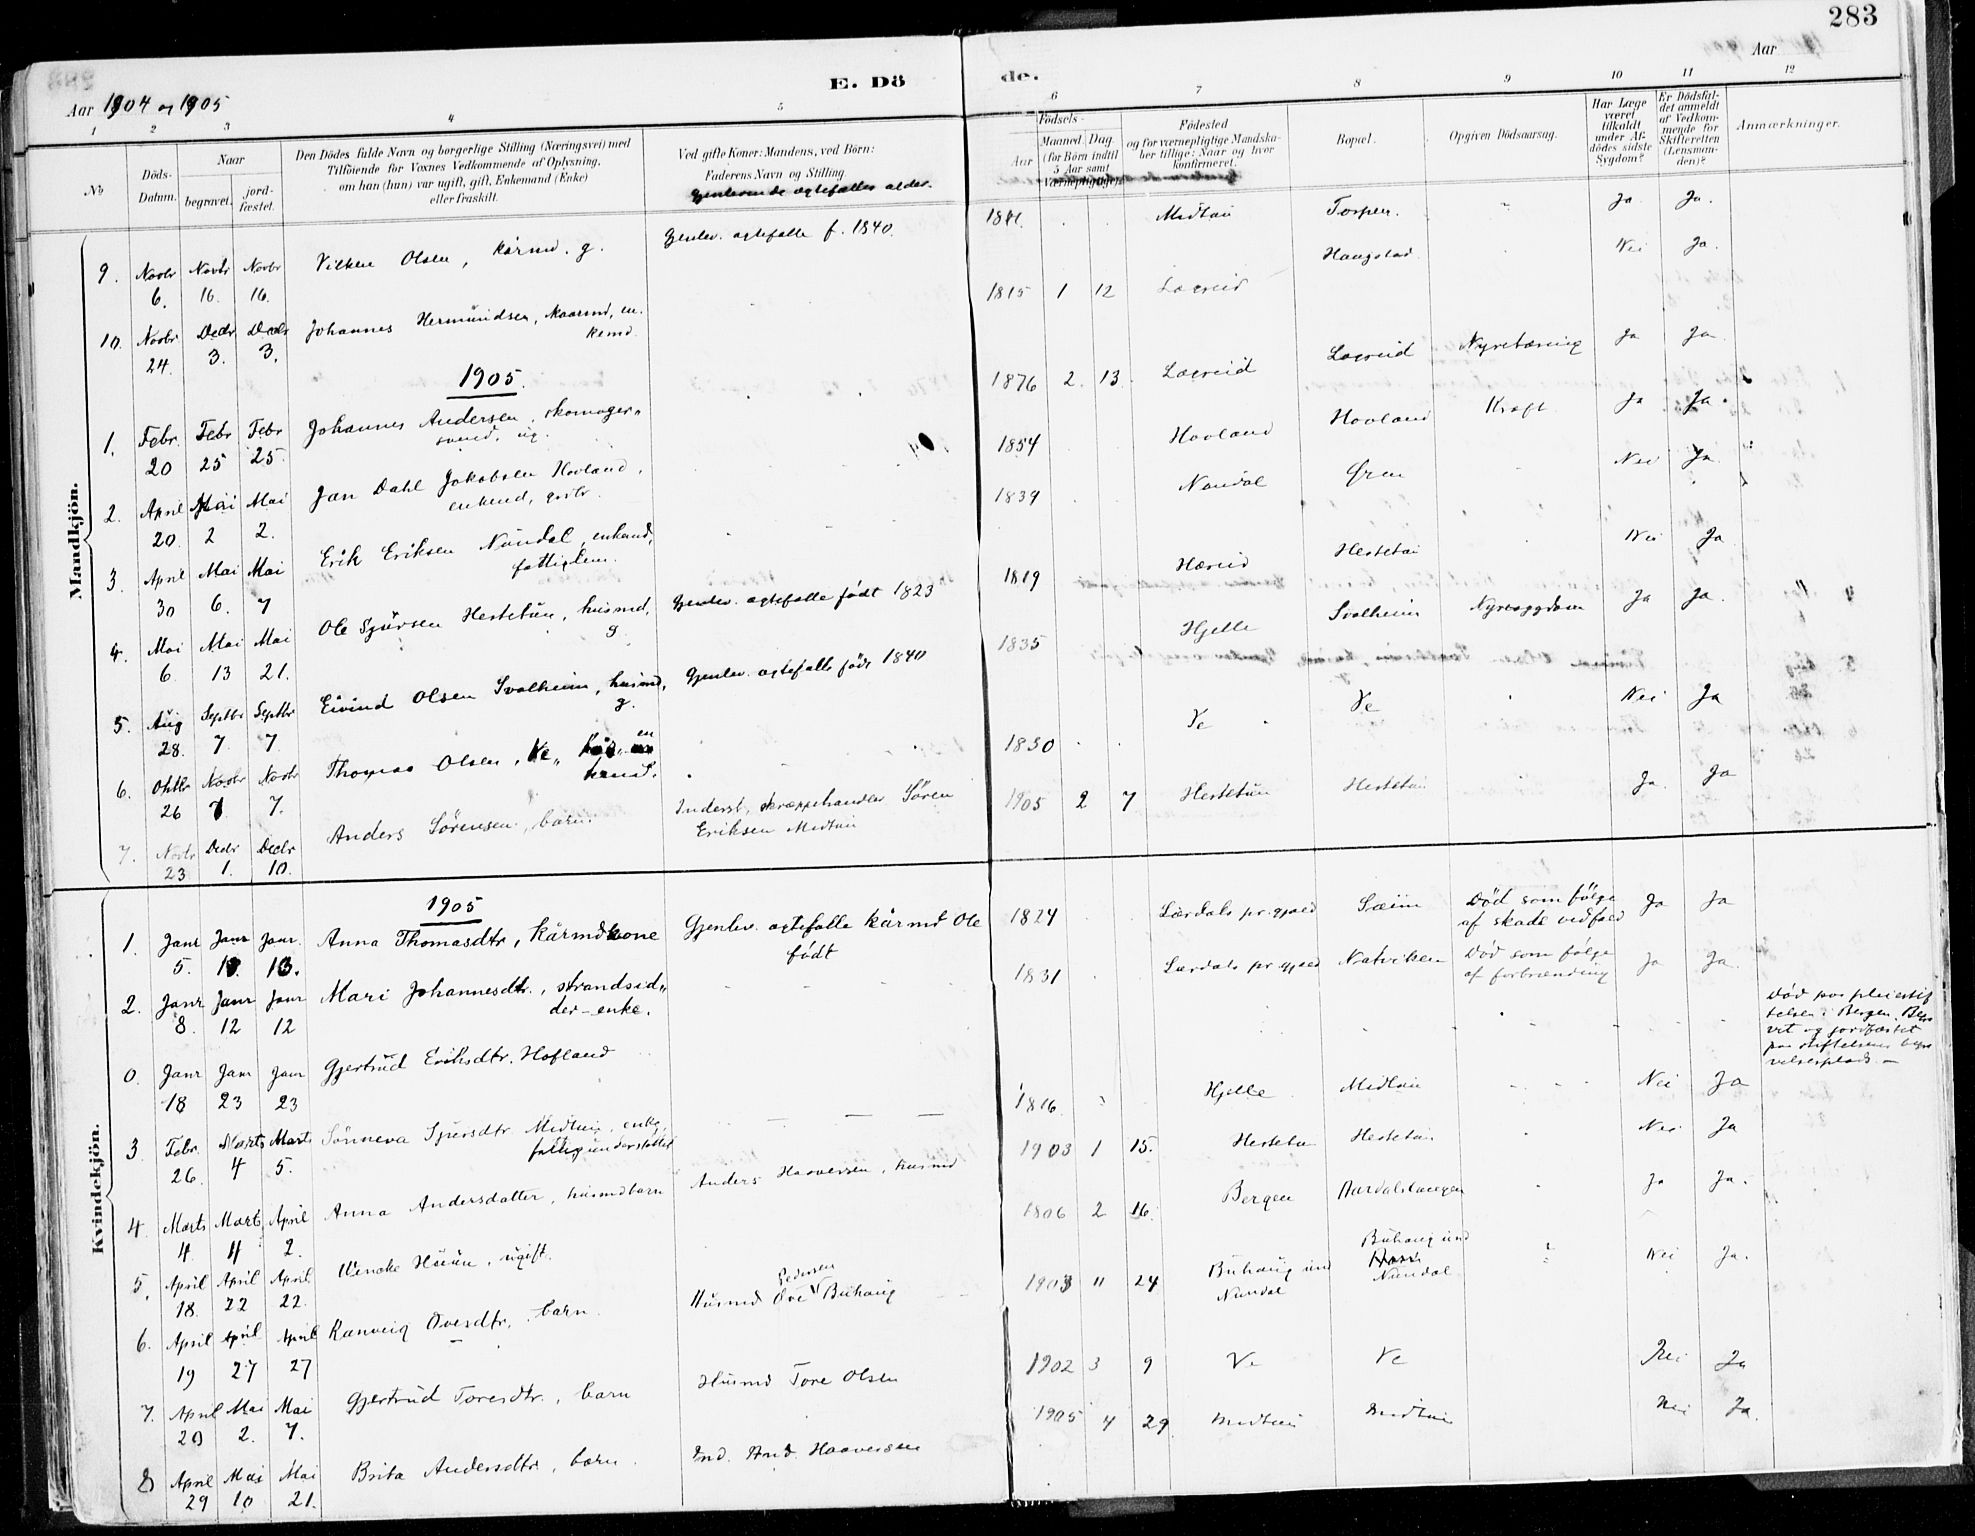 283
E. Dö de.
Aar 1904 og 1905
Aar
1 2 3 4 5 6 7 8 9 10 11 12
No
Döds-Datum.
Naar
begravet.
jord-fæstet.
Den Dödes fulde Navn og borgerlige Stilling (Næringsvei) med
Tilföiende for Voxnes Vedkommende af Oplysning,
om han (hun) var ugift, gift, Enkemand (Enke)
eller fraskilt.
Ved gifte Koner: Mandens, ved Börn:
Faderens Navn og Stilling
Gjenlevende ægtefælles alder.
Födsels-
Aar
Maaned
Dag.
(for Börn indtil
5 Aar samt
Værnepligtige).
Födested
og for værnepligtige Mandska-
ber tillige: Naar og hvor
konfirmeret.
Bopæl.
Opgiven Dödsaarsag.
Har Læge
været
tilkaldt
under Af-
dödes sidste
Sygdom?
Er Dödsfal-
det anmeldt
af Vedkom-
mende for
Skifteretten
(Lensman-
den)?
Anmærkninger.
Mandkjön.
9. Novbr 6. Novbr 16. Novbr 16. Vilken Olsen, kårmd. g. Gjenlev. ægtefælle f. 1840. 1841 Midtun Torpen. Ja. Ja.
10. Novbr 24. Decbr 3. Decbr 3. Johannes Hermundsen, kaarmd, en-
kemd. 1815 1 12 Lægreid Haugstad Nei Ja.
1905.
1. Febr. 20 Febr 25 Febr 25. Johannes Andersen, skomager-
svend, ug. 1876 2. 13. Lægreid Lægreid Nyretæring Ja Ja
2. April 20. Mai 2 Mai 2. Jan Dahl Jakobsen Hovland,
enkemd, grdbr. 1854 Hovland Hovland Kræft Ja Ja.
3. April 30 Mai 6. Mai 7 Erik Eriksen Nundal, enkemd,
fattiglem. 1839 Nundal Øren Nei Ja
4. Mai 6. Mai 13 Mai 21. Ole Sjursen Hestetun, husmd,
g. Gjenlev. ægtefælle født 1823 1819 Hæreid Hestetun Nei Ja
5. Aug 28. Septbr 7. Septbr 7 Eivind Olsen Svalheim, husmd,
g. Gjenlev. ægtefælle født 1840 1835 Hjelle Svalheim Nyresygdom Ja Ja.
6. Oktbr 26 Novbr 7. Novbr 7. Thomas Olsen, Ve, en
kemd. 1830 Ve Ve Nei Ja
7. Novbr 23 Decbr 1. Decbr 10. Anders Sörensen, barn. Inderst, skræppehandler Sören
Eriksen Midtun 1905 2 7 Hestetun Hestetun Ja. Ja
Kvindekjön.
1905
1. Janr 5. Janr Janr. 13. Anna Thomasdtr, Kårmdkone Gjenlev. ægtefælle kårmd Ole
født 1824 Lærdals pr.gjæld Sæim Död som fölge
af skade vedfod Ja Ja
2. Janr 8. Janr 12 Janr 12 Mari Johannesdtr., strandsid-
der-enke. 1831 Lærdals pr.gjæld Natviken Död som fölge
af forbrænding Ja Ja.
0. Janr 18 Janr 23 Janr 23 Gjertrud Eriksdtr. Hofland Död paa pleiestif
telsen i Bergen. Begra
vet og jordfæstet
paa stiftelsens begra
velsesplads. —
3. Febr. 26. Marts 4 Marts 5. Sönneva Sjursdtr Midtun, enke,
fattigunderstöttet 1816. Hjelle Midtun Nei Ja
4. Marts 4. Marts 11 April 2. Anna Andersdatter, husmdbarn Anders Haaversen, husmd 1903 1 15. Hestetun Hestetun Nei Ja
5. April 18. April 22 April 22. Wencke Huun, ugift. 1806 2 16. Bergen Aardalstangen Ja Ja.
6. April 19 April 27 April 27 Ranveig Ovesdtr., barn. Husmd Ove Pedersen Buhaug 1903 11 24 Buhaug und
Nundal Buhaug und
Nundal Nei Ja.
7. April 20 Mai 2. Mai 7. Gjertrud Toresdtr., barn Husmd Tore Olsen 1902 3 9 Ve Ve Nei Ja
8 April 29 Mai 10 Mai 21. Brita Andersdtr, barn. Ind. And. Haaversen 1905 4 29 Midtun Midtun Nei Ja.